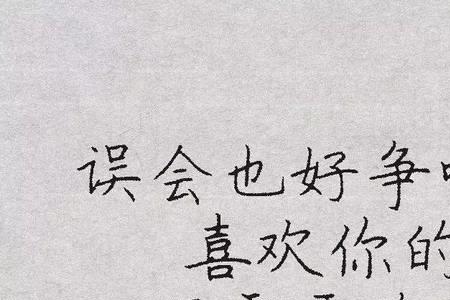 误会也好争
喜欢你的